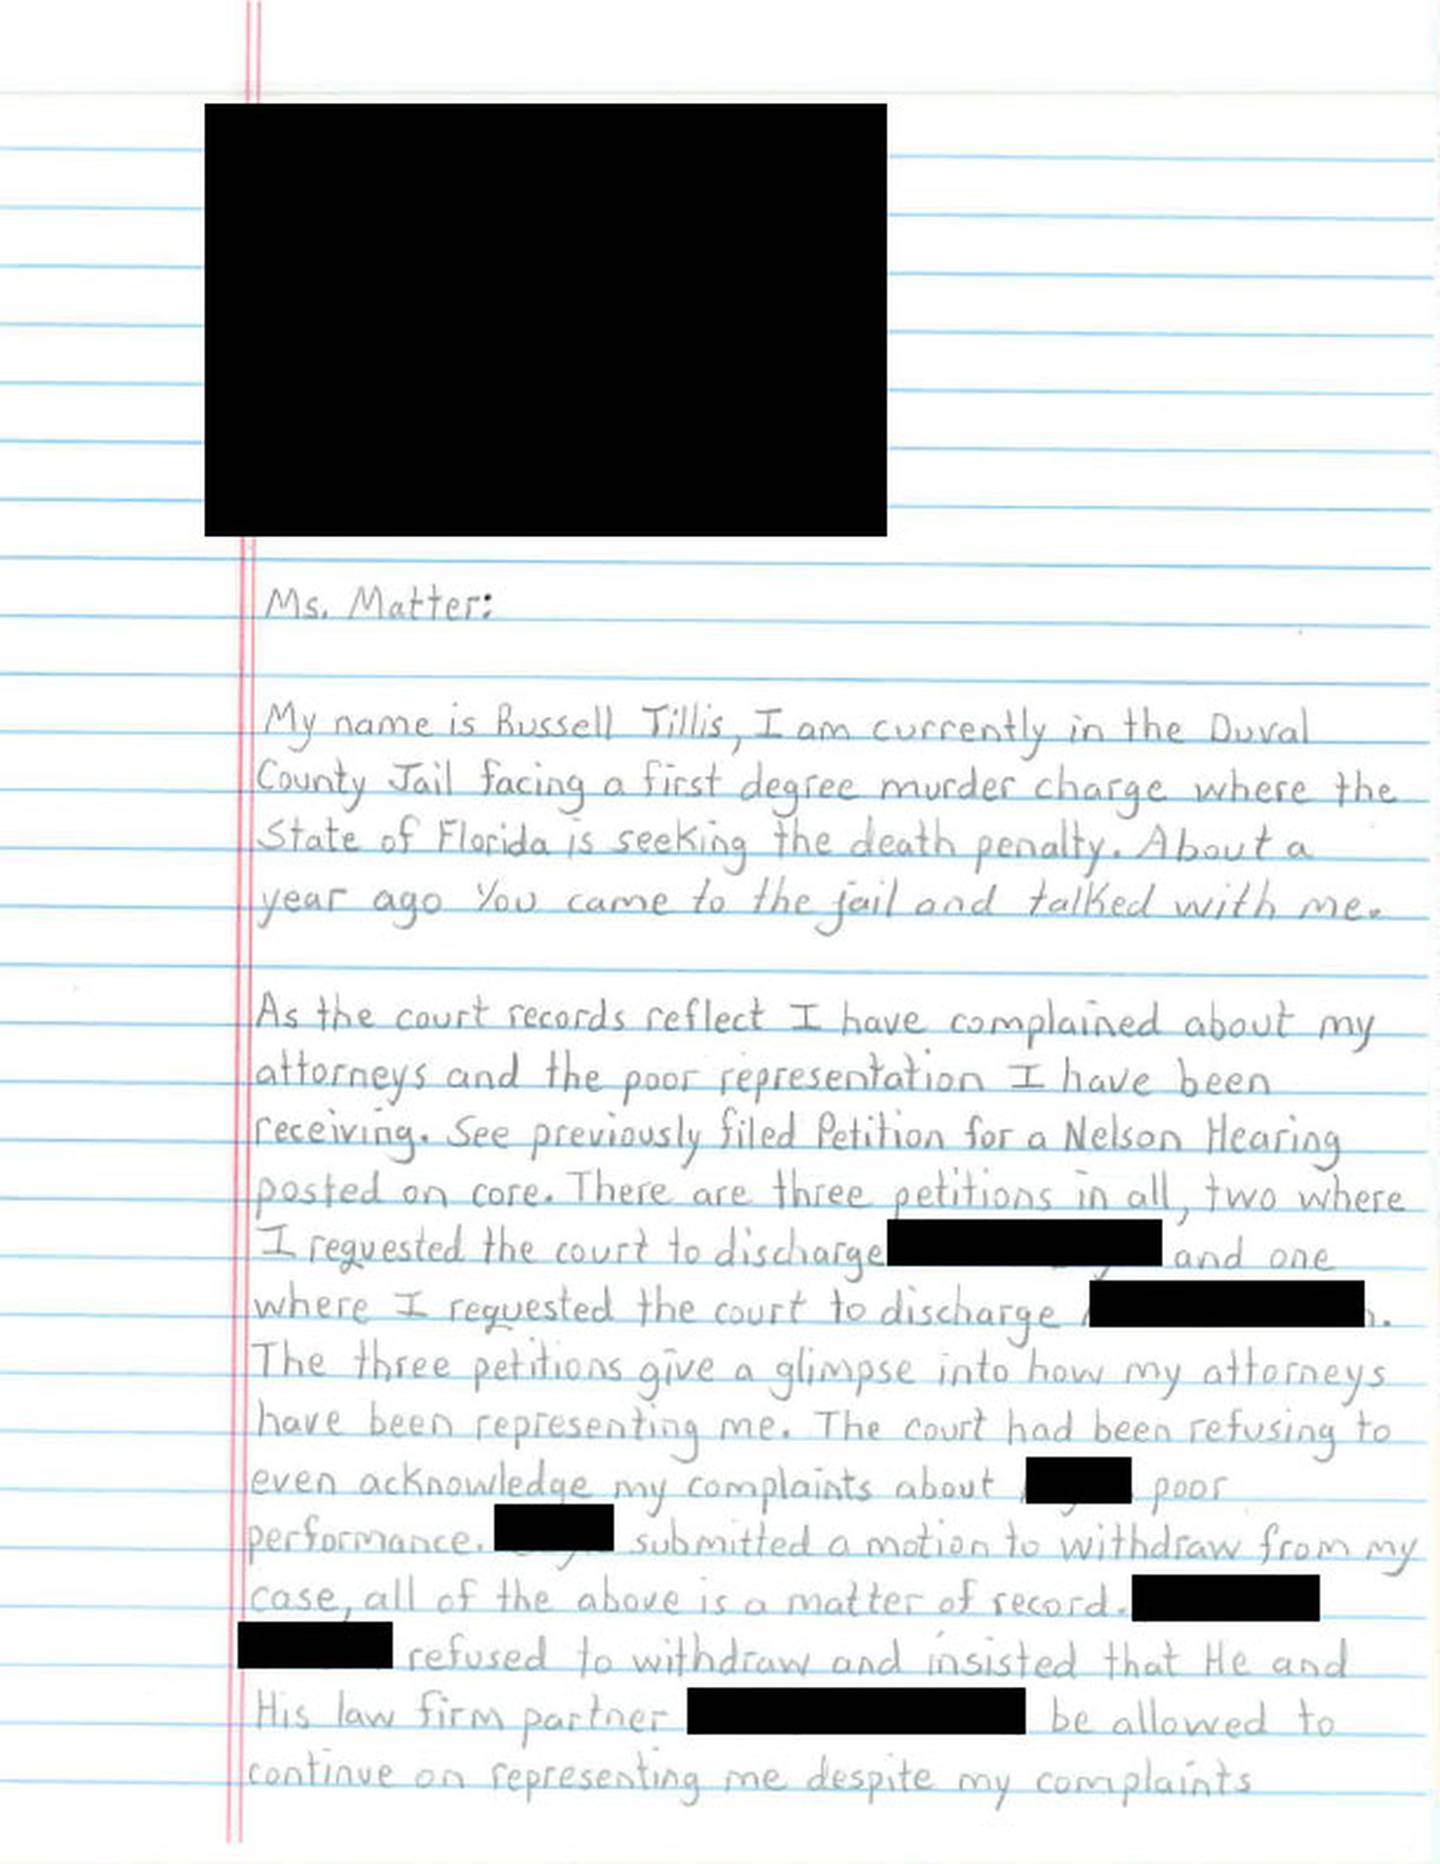 Ms. Matter:
My name is Russell Tillis, I am currently in the Duval
County Jail facing a first degree murder charge where the
State of Florida is seeking the death penalty. About a
year ago You came to the jail and talked with me.
As the court records reflect I have complained about my
attorneys and the poor representation I have been
receiving. See previously filed Petition for a Nelson Hearing
posted on core. There are three petitions in all, two where
I requested the court to discharge and one
where I requested the court to discharge .
The three petitions give a glimpse into how my attorneys
have been representing me. The court had been refusing to
even acknowledge my complaints about poor
performance. submitted a motion to withdraw from my
case, all of the above is a matter of record.
refused to withdraw and insisted that He and
His law firm partner be allowed to
continue on representing me despite my complaints